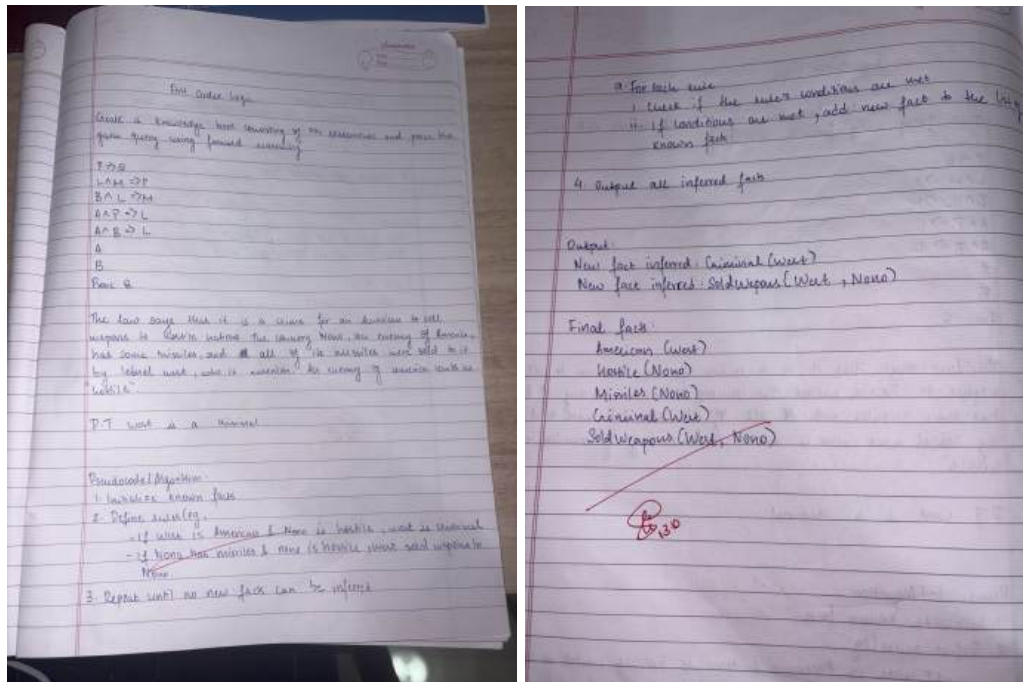 First Order Logic
Create a knowledge base consisting of and prove the
given query using forward reasoning
P => Q
L ∧ M => P
B ∧ L => M
A ∧ P => L
A ∧ B => L
A
B
Prove Q
The law says that it is a crime for an American to sell
weapons to hostile nations The country Nono, an enemy of America,
has some missiles, and all of its missiles were sold to it
by west, who is American. An enemy of america counts as
hostile"
P.T west is a criminal
Pseudocode/Algorithm
1. Initialize known facts
2. Define rules (eg,
- if West is American & Nono is hostile, west is criminal
- if Nono has missiles & nono is hostile, west sold weapons to
Nono.
3. Repeat until no new facts can be inferred
a. For each rule
i. Check if the rule's conditions are met
ii. if conditions are met, add new fact to the list of
known fact
4. Output all inferred facts
Output:
New fact inferred: Criminal (West)
New fact inferred: SoldWepons (West, Nono)
Final facts:
American (West)
Hostile (Nono)
Missiles (Nono)
Criminal (West)
SoldWeapons (West, Nono)